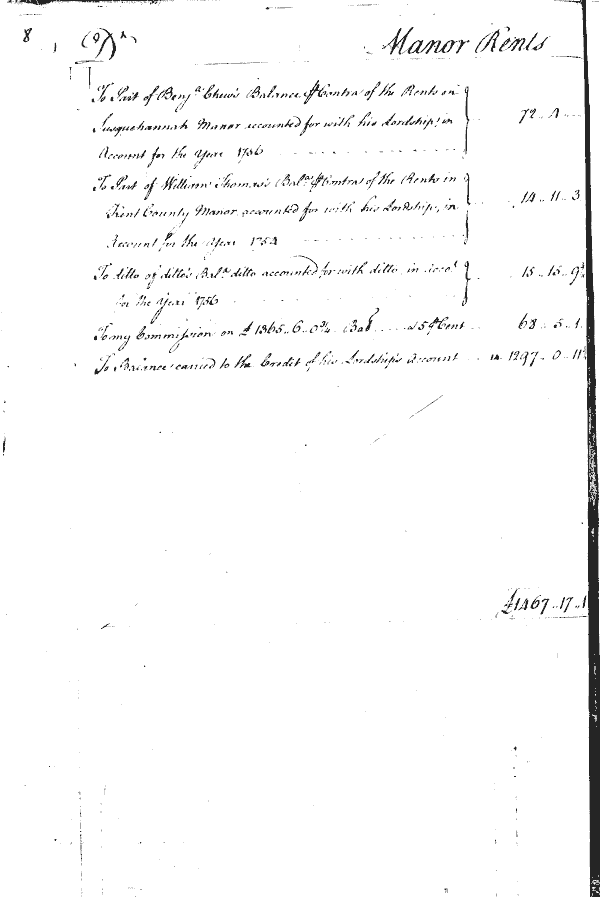 8 (9)
Manor Rents
To Part of Benj.ª Chew's Balance ⅌ Contra of the Rents in
Susquehannah Manor accounted for with his Lordship, in 72 .. 4 ..
Account for the Year 1756
To Part of William Thomas's Bal.ce ⅌ Contra of the Rents in
Kent County Manor accounted for with his Lordship, in 14 .. 11 .. 3
Account for the Year 1754
To ditto of ditto's Bal.ce ditto accounted for with ditto in Acco.t 15 .. 15 .. 9
for the Year 1756
To my Commission on £1365 .. 6 .. 0¾ Bal a 5 ⅌ Cent 68 .. 5 .. 1
To Balance carried to the Credit of his Lordship's Account 1297 .. 0 .. 11
£1467 .. 17 .. 1